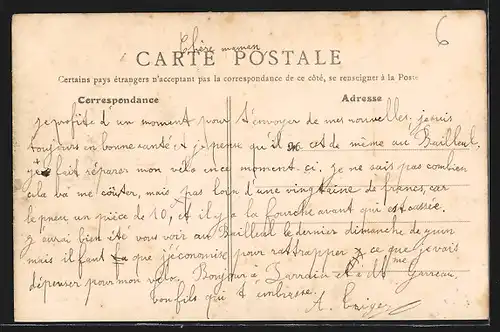 6
Chère maman
CARTE POSTALE
Certains pays étrangers n'acceptant pas la correspondance de ce côté, se renseigner à la Poste
Correspondance
Adresse
je profite d'un moment pour t'envoyer de mes nouvelles, je suis
toujours en bonne santé et je pense qu'il en est de même au Bailleul.
je fait réparer mon vélo en ce moment ci. je ne sais pas combien
cela va me coûter, mais pas loin d'une vingtaine de francs, car
le pneu un pièce de 10, et il y a la fourche avant qui est cassée.
j'aurai bien été vous voir au Bailleul le dernier dimanche de juin
mais il faut que j'économise pour rattrapper ce que je vais
dépenser pour mon vélo. Bonjour à et à Mme
ton fils qui t'embrasse. A.